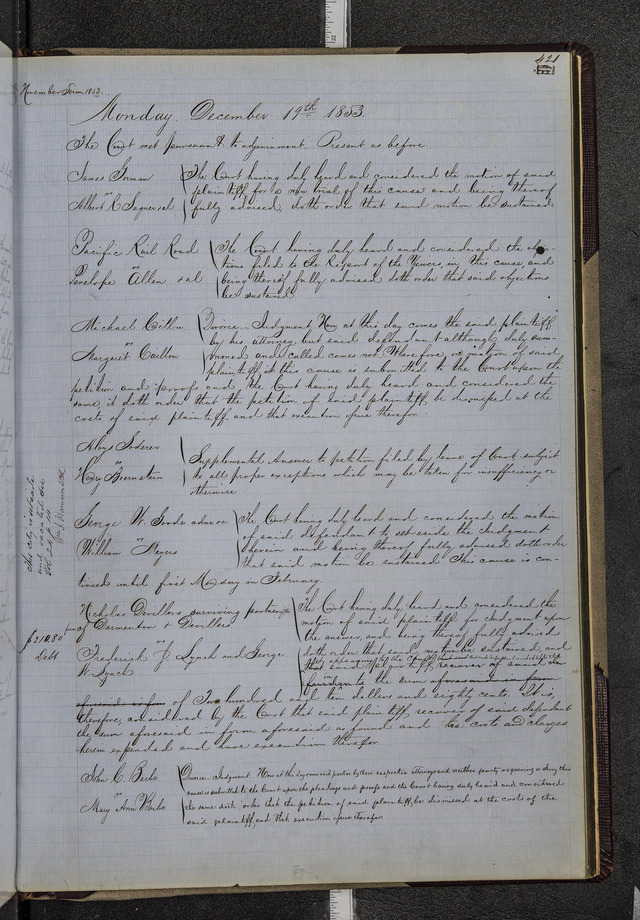 421
November Term 1853.
Monday, December 19th 1853.
The Court met pursuant to adjournment. Present as before
James Inman
vs
Albert R
The Court having duly heard and considered the motion of said
plaintiff for a new trial of this cause and being thereof
fully advised, doth order that said motion be sustained
Pacific Rail Road
vs
Penelope Allen et al
The Court having duly heard and considered the objec-
tions filed to the Report of the Viewers in this cause and
being thereof fully advised doth order that said objections
be sustained
Michael
vs
Margaret
Divorce. Judgment Now at this day comes the said plaintiff
by his attorney, but said defendant although duly sum-
moned and called comes not. Wherefore, on motion of said
plaintiff, this cause is submitted to the Court upon the
petition and proofs and the Court having duly heard and considered the
same, it doth order that the petition of said plaintiff, be dismissed at the
costs of said plaintiff, and that execution issue therefor.
Aloys
vs
Bernstein
Supplemental Answer to petition filed by leave of Court subject
to all proper exceptions which may be taken for insufficiency or
otherwise
George W. Goode
vs
William Meyers
The Court having duly heard and considered the motion
of said defendant to set aside the Judgment
herein and being thereof fully advised doth order
that said motion be sustained. This cause is con-
tinued until first Monday in February.
Nicholas Devillers surviving partner
of Darmenton & Devillers
vs
Frederick J Lynch and George
W. Lynch
$210.80
Debt
The Court having duly heard and considered the
motion of said plaintiff for Judgment upon
the answer, and being thereof fully advised
doth order that said motion be sustained, and
that said plaintiff recover of said
to the sum aforesaid in form
aforesaid of Two hundred and ten dollars and eighty cents. It is
therefore, considered by the Court that said plaintiff recover of said defendant
the sum aforesaid in form aforesaid as found and his costs and charges
herein expended and have execution therefor.
John C. Berbo
vs
Mary Ann Berbo
Divorce. Judgment Now at this day come said parties by their respective attorneys and neither party requiring a Jury this
cause is submitted to the Court upon the pleadings and proofs and the Court having duly heard and considered
the same doth order that the petition of said plaintiff, be dismissed at the costs of the
said plaintiff, and that execution issue therefor.